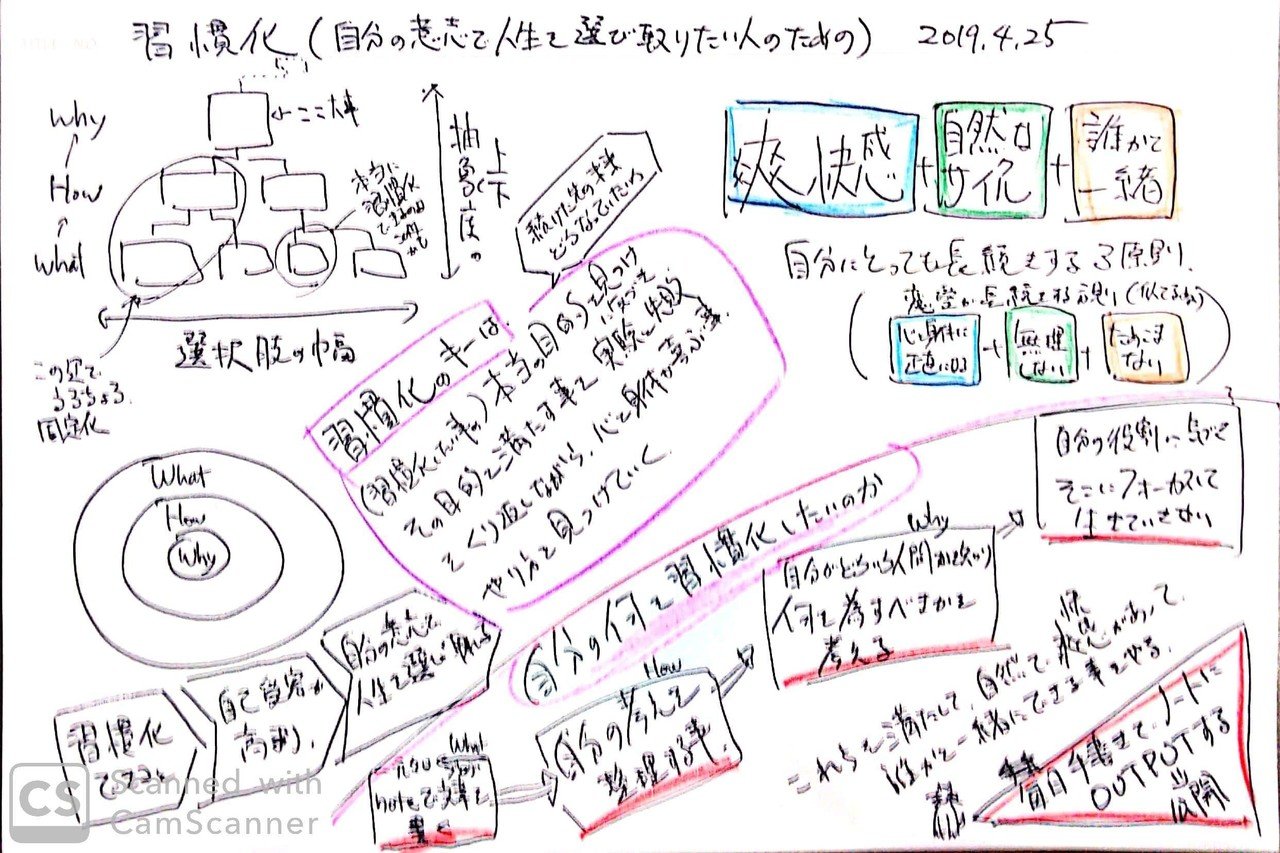 習慣化(自分の意志で人生を選び取りたい人のための) 2019.4.25
Why
How
What
←ここ大事
本当に
習慣化
抽象度の
上下
選択肢の幅
この図で
固定化
続けた先の未来
どうなっていたいか
爽快感
+
自然な
サイクル
+
誰かと
一緒
自分にとっても長続きする3原則
恋愛が長続きする
心と身体に
正直になる
+
無理
しない
+
ためこま
ない
習慣化のキーは、
(習慣化したい事の)本当の目的を見つけ
その目的を満たす事を実験と失敗
をくり返しながら、心と身体が喜ぶ
やり方を見つけていく
What
How
Why
習慣化
できると
自己肯定が
高まり、
自分の意志で
人生を選び取れる
自分の何を習慣化したいのか
What
noteで文章を
書く
How
自分の考えを
整理する事
Why
自分がどういう人間かを知り
何を為すべきかを
考える
自分の役割に気づき
そこにフォーカスして
これらを満たして、自然で、快感があって、
誰かと一緒にできる事をやる。
毎日手書きで、ノートに
OUTPUTする
公開
CS Scanned with
CamScanner